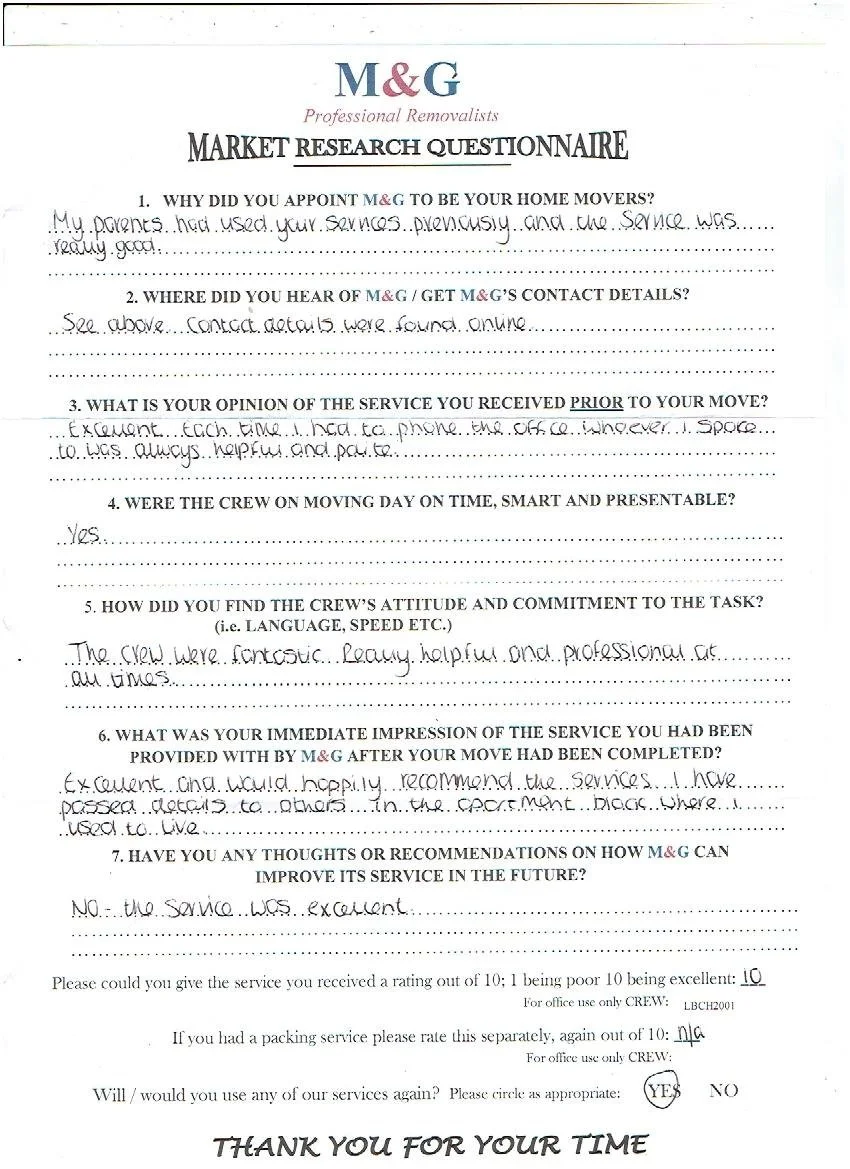 M&G
Professional Removalists
MARKET RESEARCH QUESTIONNAIRE
1. WHY DID YOU APPOINT M&G TO BE YOUR HOME MOVERS?
My parents had used your services previously and the service was
really good.
2. WHERE DID YOU HEAR OF M&G / GET M&G'S CONTACT DETAILS?
See above. Contact details were found online
3. WHAT IS YOUR OPINION OF THE SERVICE YOU RECEIVED PRIOR TO YOUR MOVE?
Excellent. Each time I had to phone the office whoever I spoke
to was always helpful and polite.
4. WERE THE CREW ON MOVING DAY ON TIME, SMART AND PRESENTABLE?
Yes.
5. HOW DID YOU FIND THE CREW'S ATTITUDE AND COMMITMENT TO THE TASK?
(i.e. LANGUAGE, SPEED ETC.)
The crew were fantastic. Really helpful and professional at
all times.
6. WHAT WAS YOUR IMMEDIATE IMPRESSION OF THE SERVICE YOU HAD BEEN
PROVIDED WITH BY M&G AFTER YOUR MOVE HAD BEEN COMPLETED?
Excellent and would happily recommend the services. I have
passed details to others in the apartment block where I
used to live.
7. HAVE YOU ANY THOUGHTS OR RECOMMENDATIONS ON HOW M&G CAN
IMPROVE ITS SERVICE IN THE FUTURE?
No - the service was excellent.
Please could you give the service you received a rating out of 10; 1 being poor 10 being excellent: 10
For office use only CREW: LBCH2001
If you had a packing service please rate this separately, again out of 10: n/a
For office use only CREW:
Will / would you use any of our services again? Please circle as appropriate: YES NO
THANK YOU FOR YOUR TIME